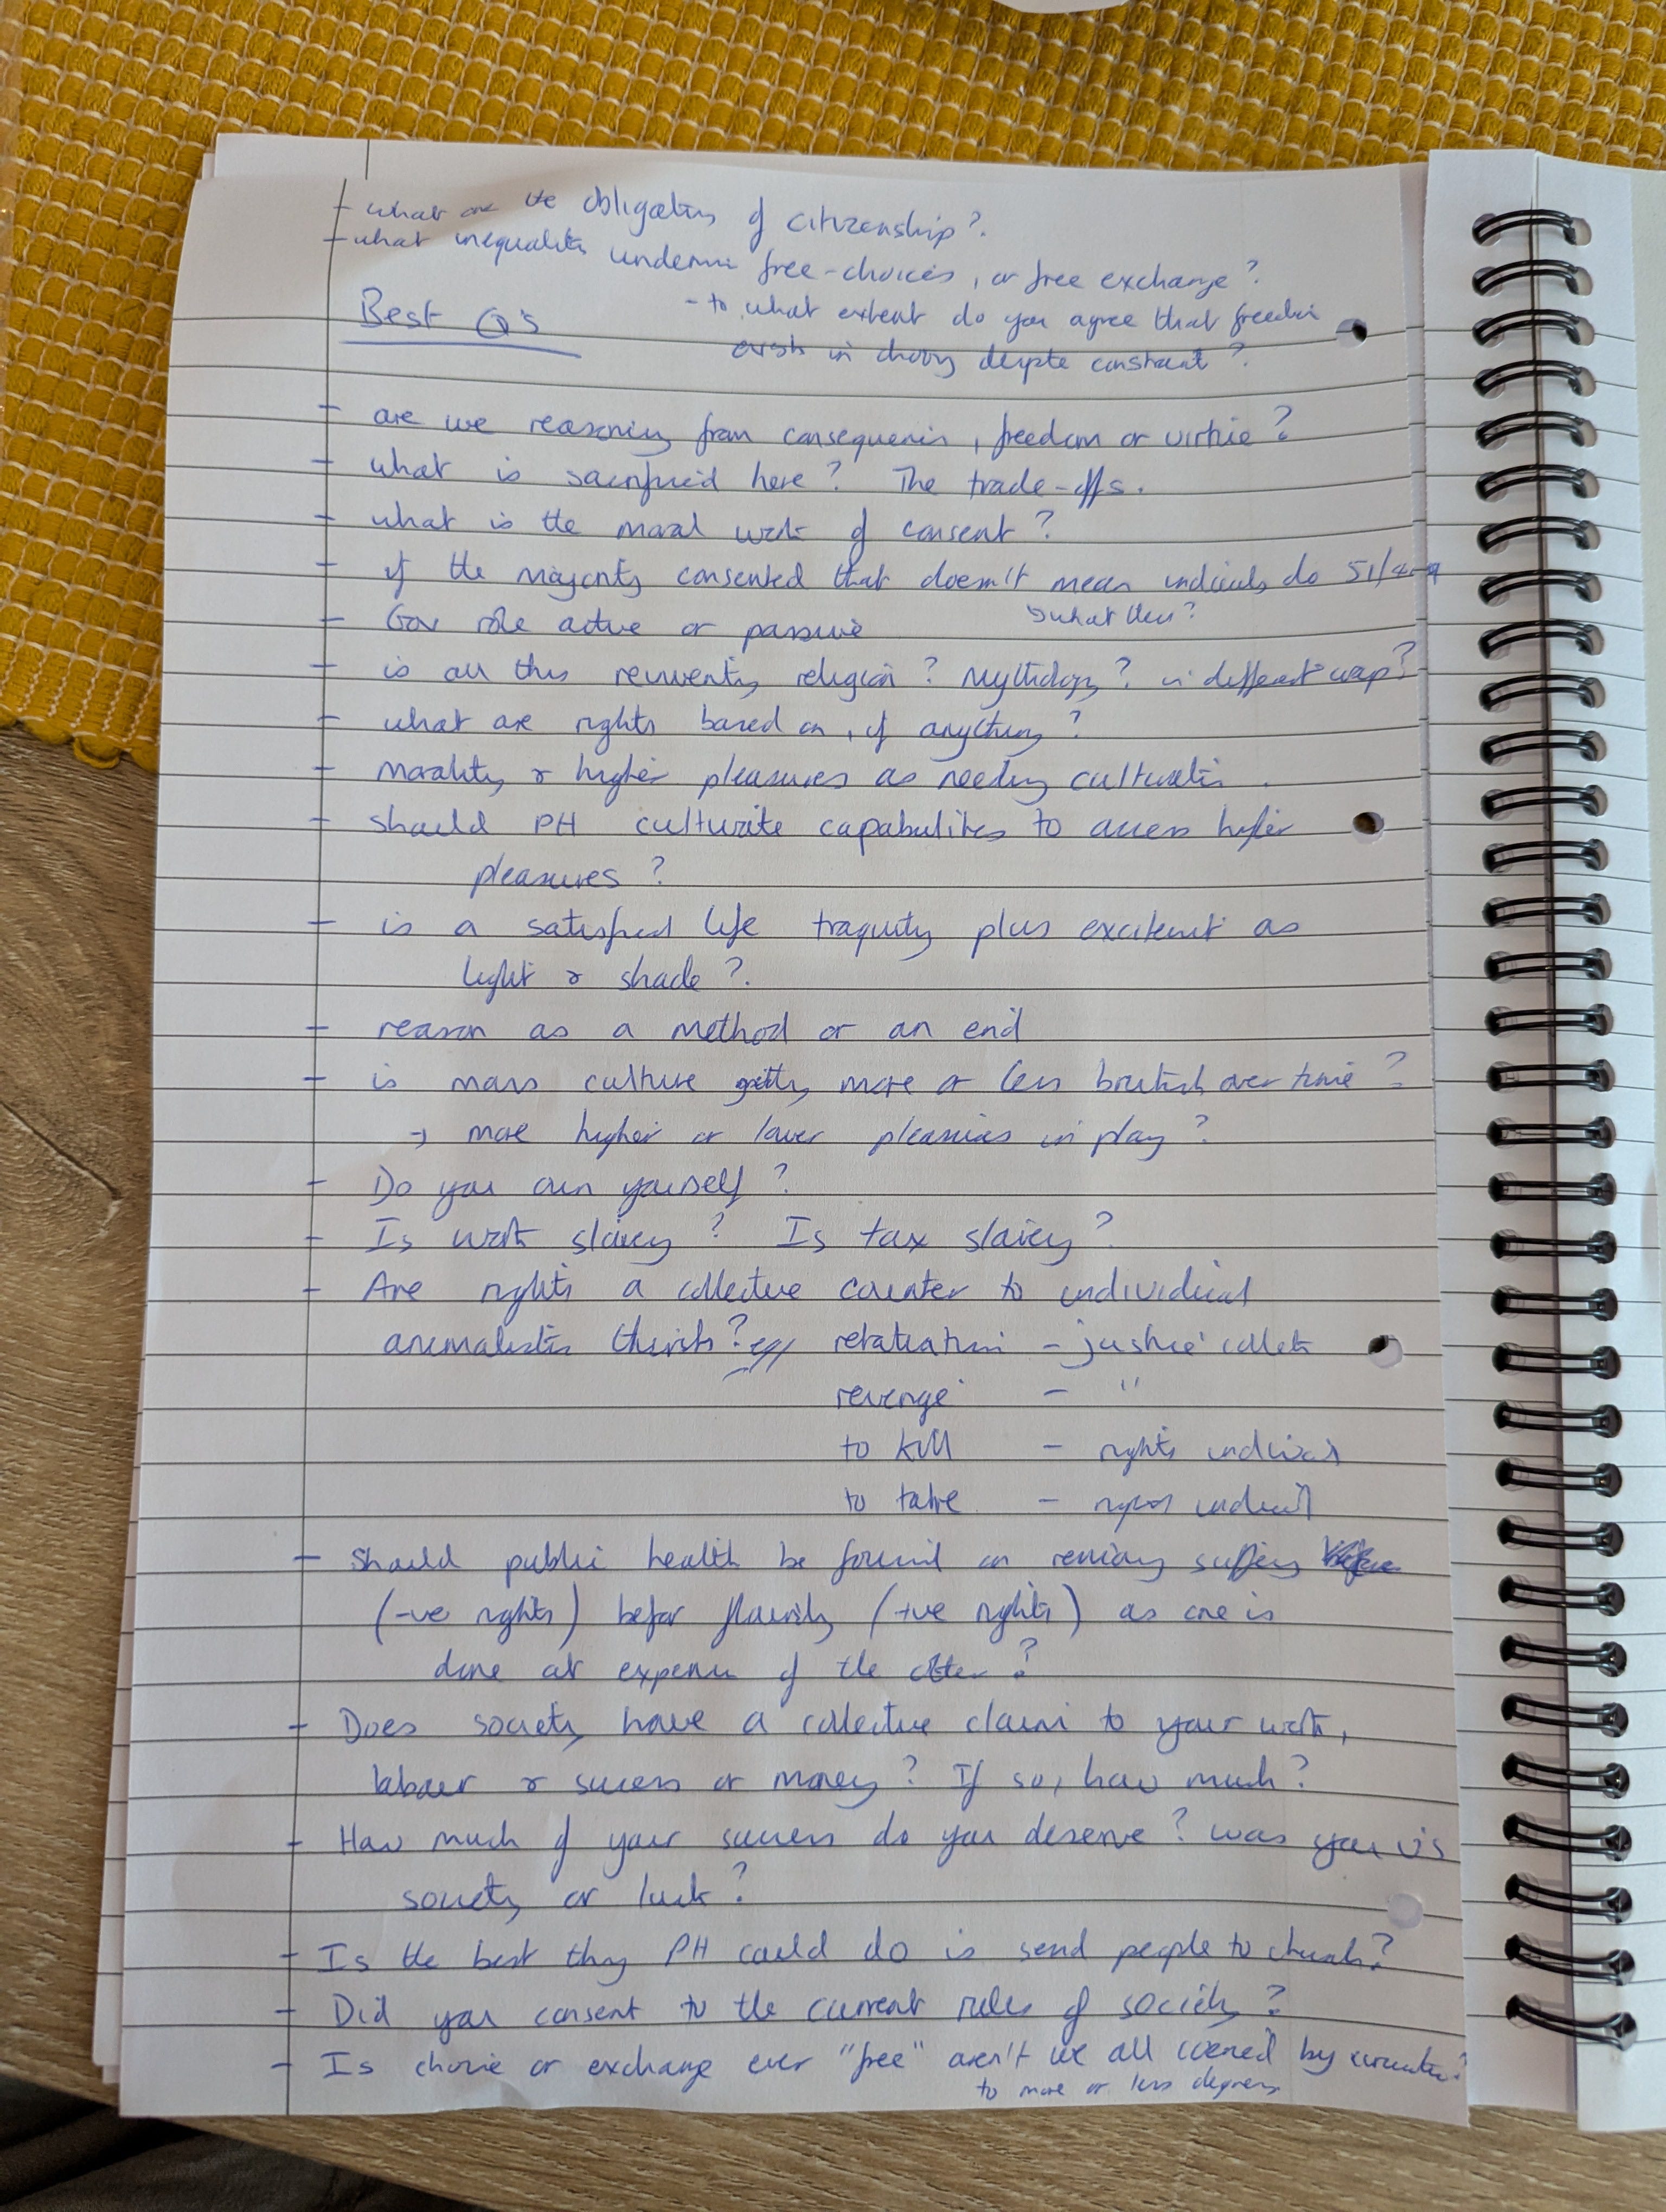 - what are the obligations of citizenship?
- what inequalities undermine free-choices, or free exchange?
- to what extent do you agree that freedom
exists in choosing despite constraint?
Best Q's
- are we reasoning from consequences, freedom or virtue?
- what is sacrificed here? The trade-offs.
- what is the moral work of consent?
- if the majority consented that doesn't mean individuals do 51/49
→ what then?
- Gov role active or passive
- is all this reinventing religion? Mythology? in different wrap?
- what are rights based on, if anything?
- morality & higher pleasures as needing cultivation.
- should PH cultivate capabilities to access higher
pleasures?
- is a satisfied life tranquility plus excitement as
light & shade?
- reason as a method or an end
- is mass culture getting more or less brutish over time?
→ more higher or lower pleasures in play?
- Do you own yourself?
- Is work slavery? Is tax slavery?
- Are rights a collective counter to individual
animalistic thirsts? eg retaliation - justice collective
revenge - "
to kill - rights individual
to take - rights individual
- Should public health be found on removing suffering
(-ve rights) before flourishing (+ve rights) as one is
done at expense of the other?
- Does society have a collective claim to your work,
labour & success or money? If so, how much?
- How much of your success do you deserve? was you vs
society or luck?
- Is the best thing PH could do is send people to church?
- Did you consent to the current rules of society?
- Is choice or exchange ever "free" aren't we all coerced by
to more or less degrees